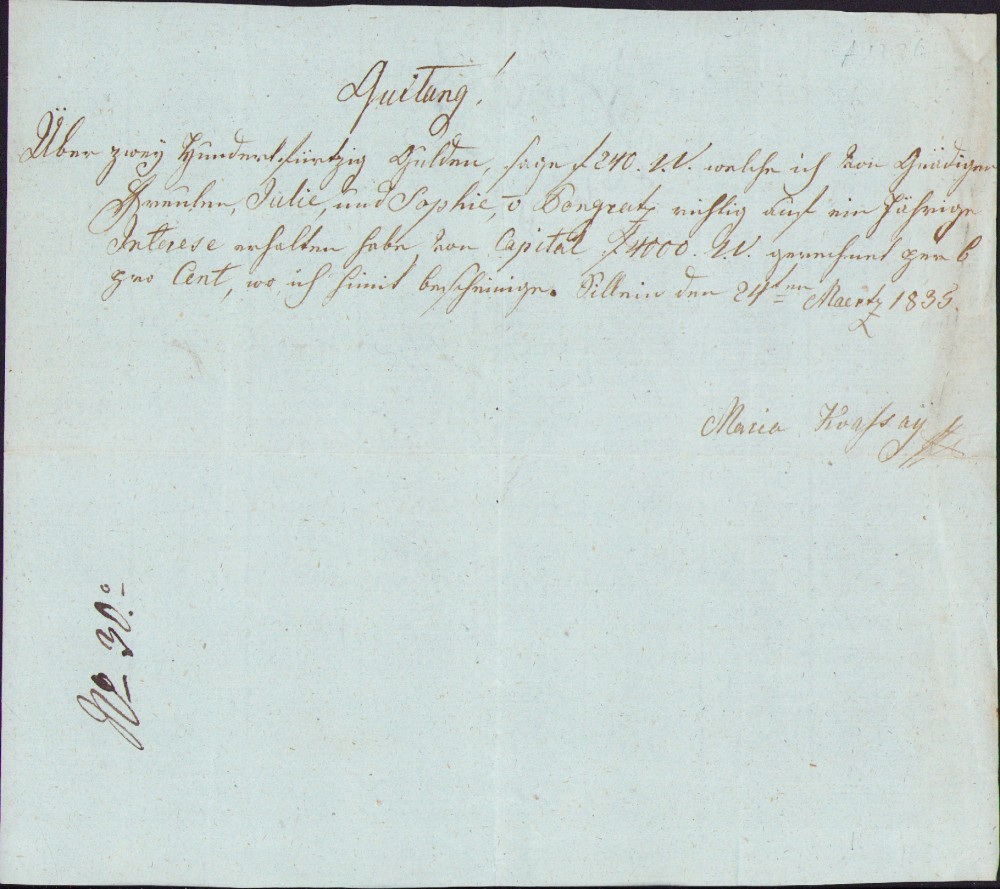 Quitung!
Über zwey Hundert fürtzig Gulden, sage f 240. W. W. welche ich von Gnädigen
Freulen, Julie, und Sophie, v Pongratz richtig auf ein Jährige
Interese erhalten habe von Capital f 4000. W. W. gerechnet per 6
pro Cent, wo ich himit bescheinige. Sillein den 24ten Maertz 1835.
Maria
No 30.